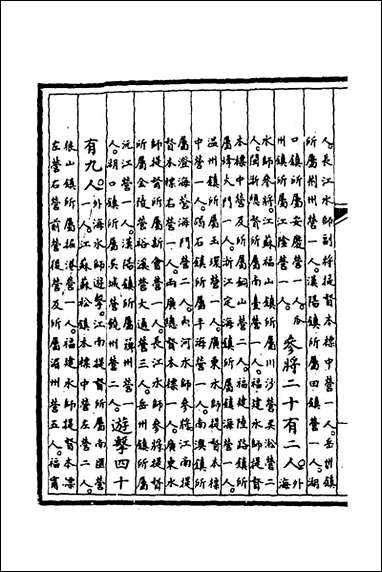 人長江水師副將提督本標中營一人岳州鎮
所屬荆州營一人漢陽鎮所屬田鎮營一人湖
口鎮所屬安慶營一人瓜
州鎮所屬江陰營一人參將二十有二人外海
水師參將江蘇福山鎮所屬川沙營吳淞營二
人閩浙總督所屬南臺營一人福建水師提督
本標中營及所屬銅山營二人福建陸路鎮所
屬烽火門一人浙江定海鎮所屬鎮海營一人
温州鎮所屬玉環營一人廣東水師提督本標
中營一人碣石鎮所屬平海營一人南澳鎮所
屬澄海營海門營二人內河水師參將江南提
督本標右營一人兩廣總督本標一人廣東水
師提督所屬新會營一人長江水師參將提督
所屬金陵營裕溪營大通營三人岳州鎮所屬
沅江營一人漢陽鎮所屬蘄州營一
人湖口鎮所屬吳城營饒州營二人遊擊四十
有九人外海水師遊擊江南提督所屬南匯營
一人江蘇蘇松鎮本標中營左營二人
狼山鎮所屬掘港營一人福建水師提督本標
左營右營前營後營及所屬湄州營五人福甯